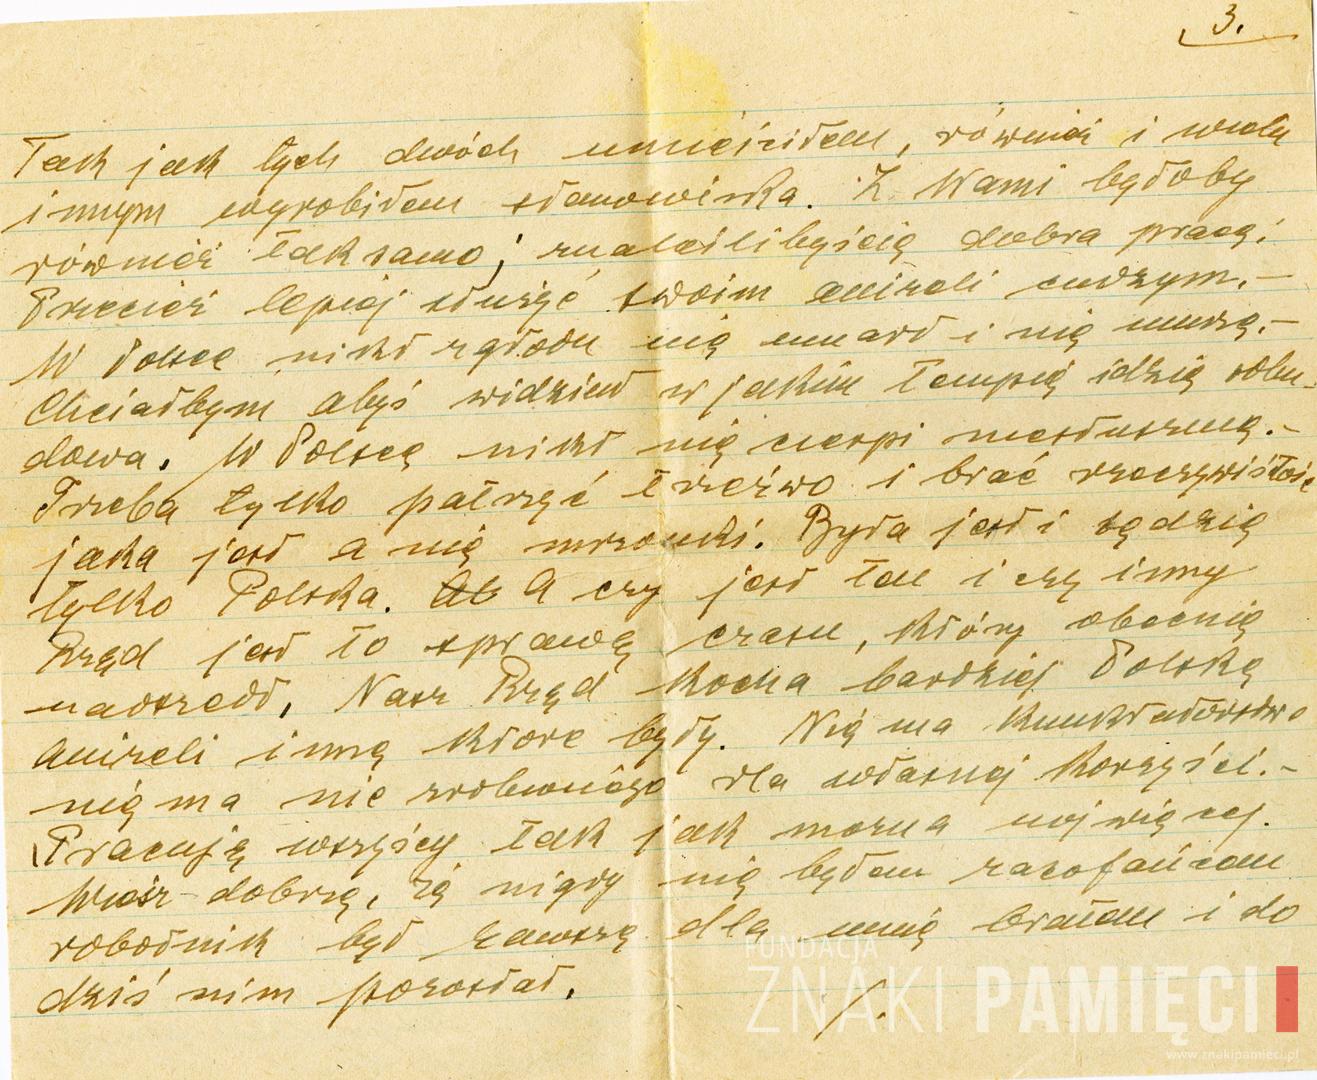 3.
Tak jak tych dwóch umieściłem, również i wielu
innym wyrobiłem stanowiska. Z Wami byłoby
również tak samo; znaleźlibyście dobra pracę.
Przecież lepiej służyć swoim aniżeli cudzym.—
W Polsce nikt z głodu nie umarł i nie umrze.—
Chciałbym abyś widział w jakim tempie idzie odbu-
dowa. W Polsce nikt nie cierpi niesłusznie.—
Trzeba tylko patrzyć trzeźwo i brać rzeczywistość
jaka jest a nie mrzonki. Była jest i będzie
tylko Polska. A czy jest ten i czy inny
Rząd jest to sprawą czasu, który obecnie
nadszedł. Nasz Rząd kocha bardziej Polskę
Aniżeli inne które były. Nie ma
nie ma nic zrobionego dla własnej korzyści.—
Pracują wszyscy tak jak można najwięcej.
Wiesz dobrze, że nigdy nie byłem zacofańcem
robotnik był zawsze dla mnie bratem i do
dziś nim pozostał.
/.
FUNDACJA
ZNAKI PAMIĘCI
www.znakipamieci.pl